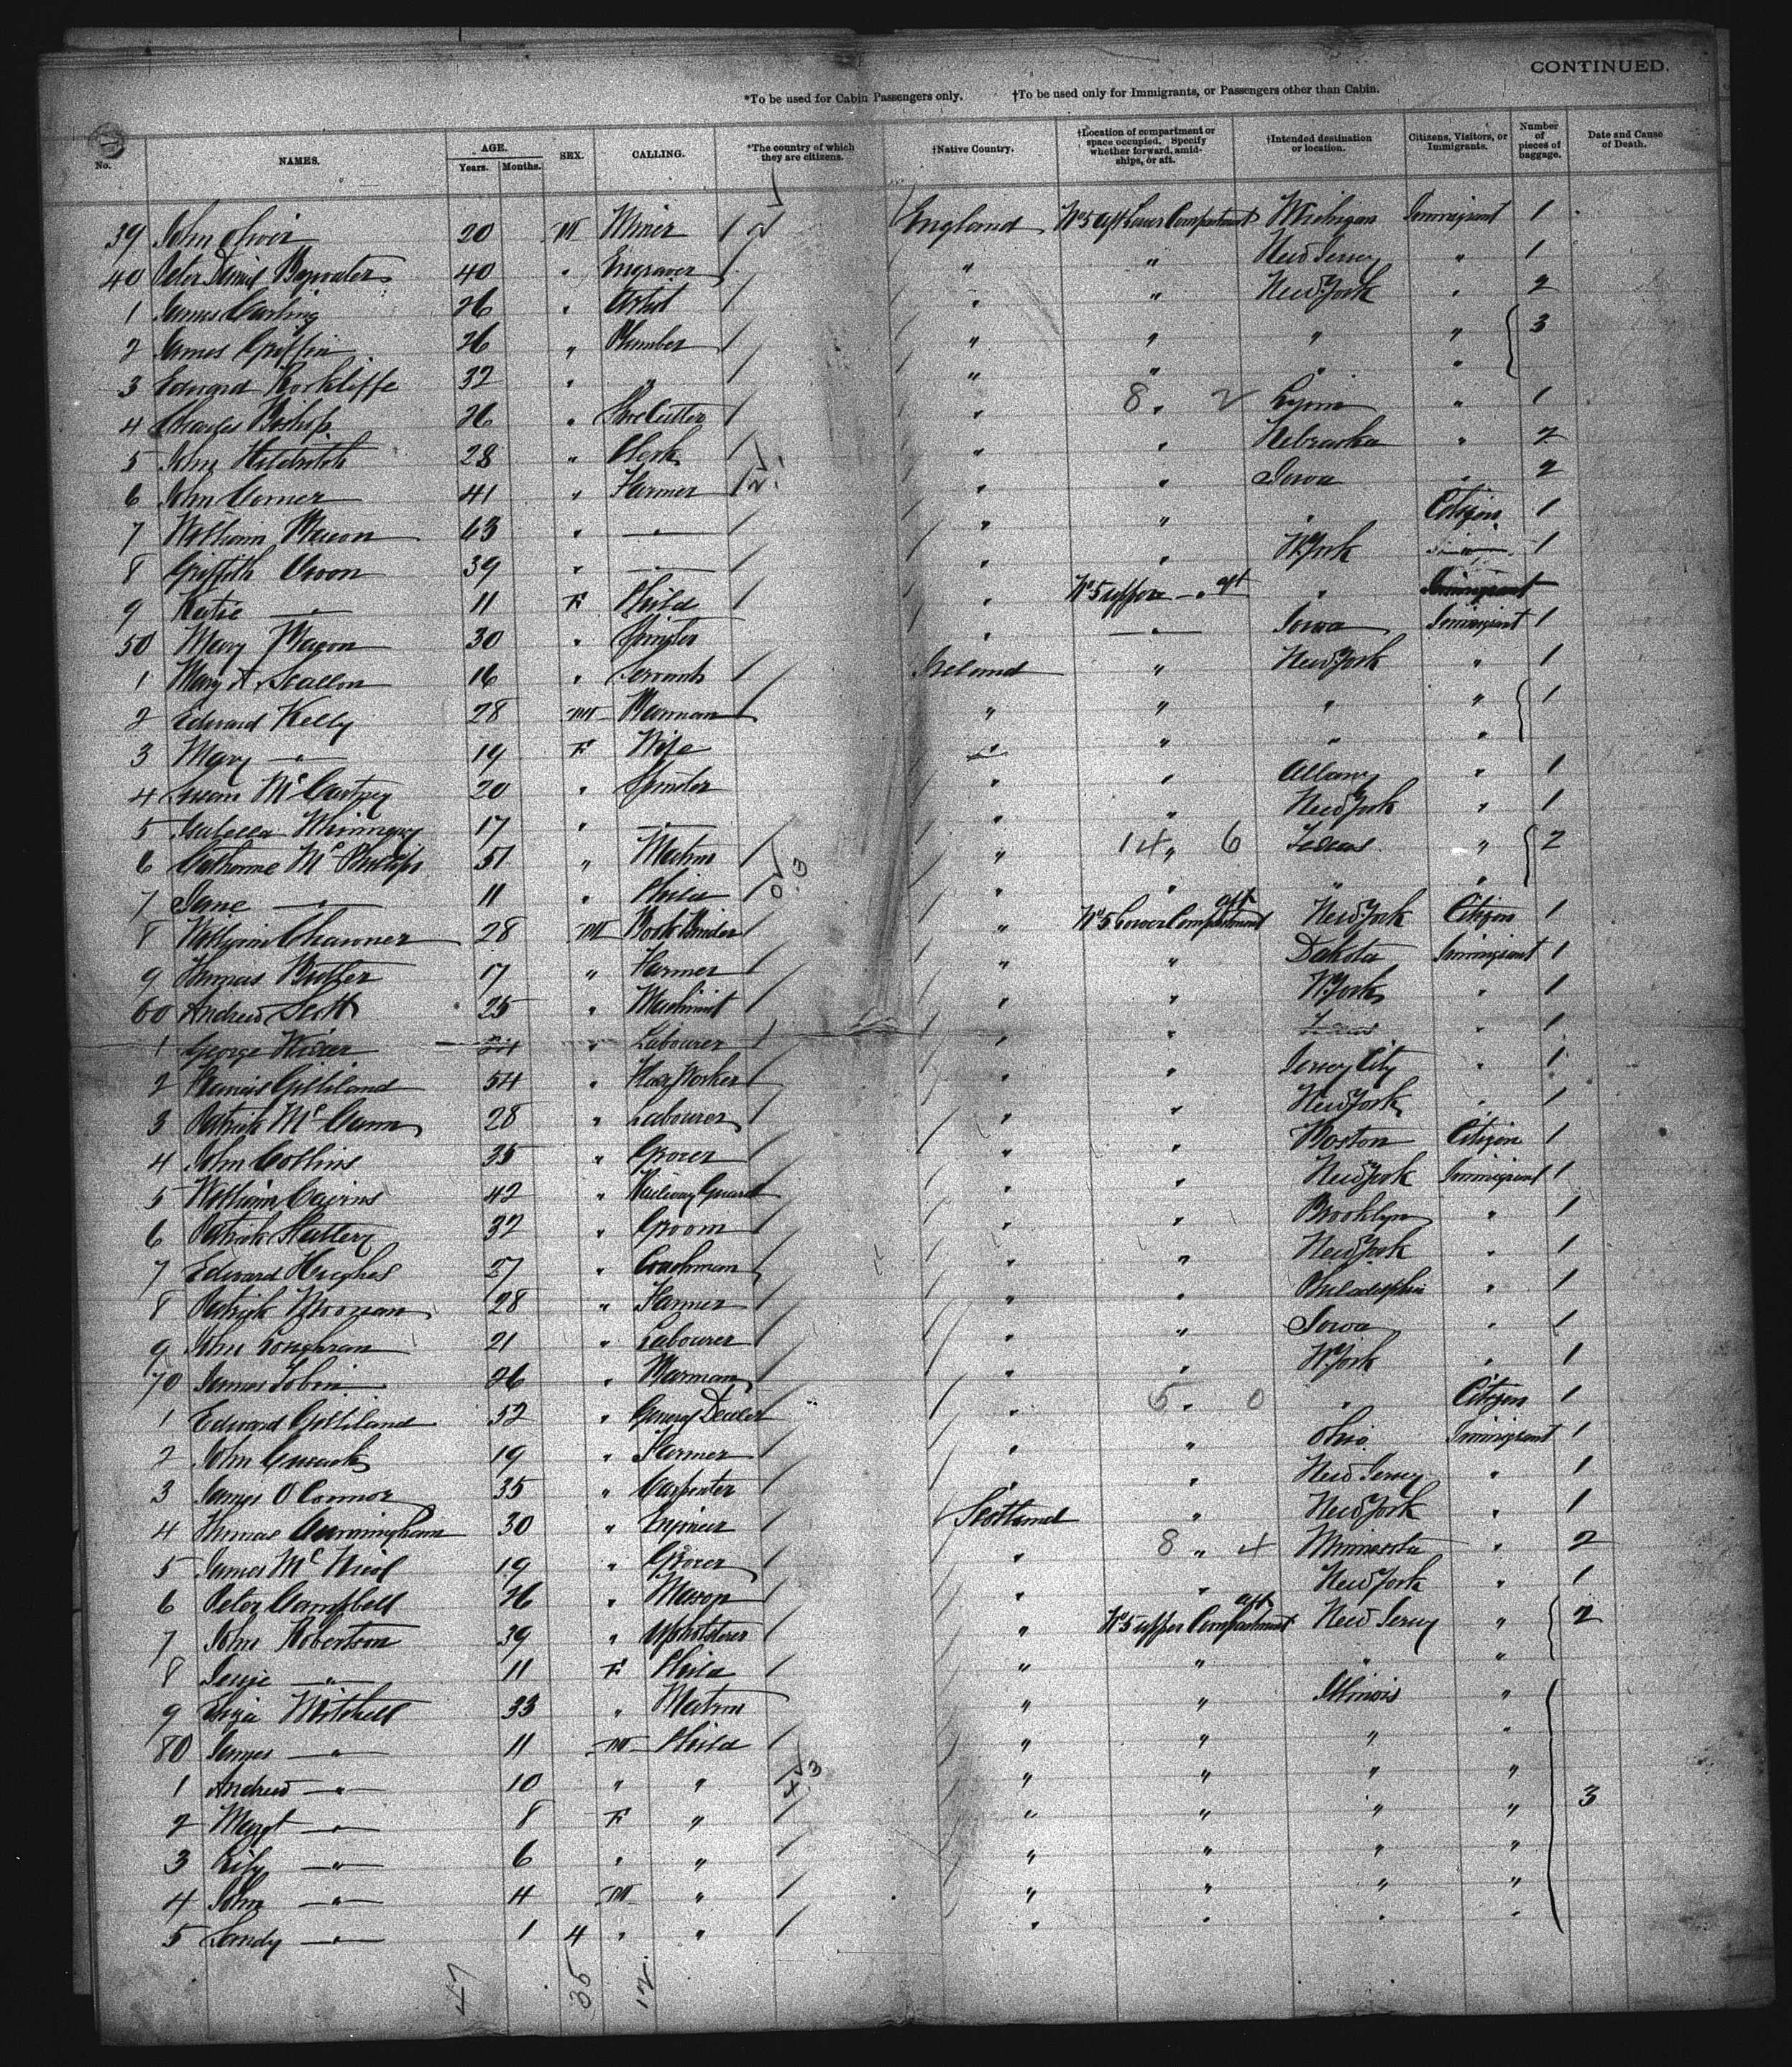 CONTINUED.
*To be used for Cabin Passengers only. †To be used only for Immigrants, or Passengers other than Cabin.
No. NAMES. AGE. Years. Months. SEX. CALLING. *The country of which they are citizens. †Native Country. †Location of compartment or space occupied. Specify whether forward, amidships, or aft. †Intended destination or location. Citizens, Visitors, or Immigrants. Number of pieces of baggage. Date and Cause of Death.
39 John 20 M Miner England No 5 aft Lower Compartment Michigan Immigrant 1
40 Peter Daniel Baywater 40 " Engraver " " New Jersey " 1
1 James Carling 26 " Artist " " New York " 2
2 James Griffin 26 " Plumber " " " " 3
3 Edward Rorkliffe 32 " " " " " "
4 Charles Bishop 26 " Shoe Cutter " 8 " 2 Lynn " 1
5 John 28 " Clerk " " Nebraska " 2
6 John Comer 41 " Farmer " " Iowa " 2
7 William Mason 43 " " " " " Citizen 1
8 Griffith Owon 39 " " " " N. York " 1
9 Katie " 11 F Child " No 5 upper " aft " Immigrant
50 Mary Mason 30 " Spinster " " Iowa Immigrant 1
1 Mary A. Scallon 16 " Servant Ireland " New York " 1
2 Edward Kelly 28 M " " " " 1
3 Mary " 19 F Wife " " " "
4 Susan McCartney 20 " Spinster " " Albany " 1
5 Isabella 17 " " " " New York " 1
6 Catherine McPhilips 51 " Matron " 14 " 6 Texas " 2
7 Jane " 11 " Child " " " "
8 William Chawner 28 M Book Binder " No 5 Lower Compartment aft New York Citizen 1
9 Thomas Butler 17 " Farmer " " Dakota Immigrant 1
60 Andrew Scott 25 " Machinist " " N. York " 1
1 George " Labourer " " " 1
2 Francis Gilliland 54 " " " Jersey City " 1
3 Patrick McCann 28 " Labourer " " New York " 1
4 John Collins 35 " Grocer " " Boston Citizen 1
5 William Cairns 42 " Railway Guard " " New York Immigrant 1
6 Patrick Slattery 32 " Groom " " Brooklyn " 1
7 Edward Hughes 27 " Coachman " " New York " 1
8 Patrick Noonan 28 " Farmer " " Philadelphia " 1
9 John Coughran 21 " Labourer " " Iowa " 1
70 James Tobin 26 " " " N. York " 1
1 Edward Gilliland 52 " General Dealer " 5 " 0 " Citizen 1
2 John Cusack 19 " Farmer " " Ohio Immigrant 1
3 James O'Connor 35 " Carpenter " " New Jersey " 1
4 Thomas Cunningham 30 " Engineer Scotland " New York " 1
5 James McNicol 19 " Grocer " 8 " 4 Minnesota " 2
6 Peter Campbell 26 " Mason " " New York " 1
7 John Robertson 39 " Upholsterer " No 5 upper Compartment aft New Jersey " 2
8 Jessie " 11 F Child " " " "
9 Eliza Mitchell 33 " Matron " " Illinois "
80 James " 11 M Child " " " "
1 Andrew " 10 " " " " " "
2 Margt " 8 F " " " " " 3
3 Lily " 6 " " " " " "
4 John " 4 M " " " " "
5 Sandy " 1 4 " " " " " "
47 35 12